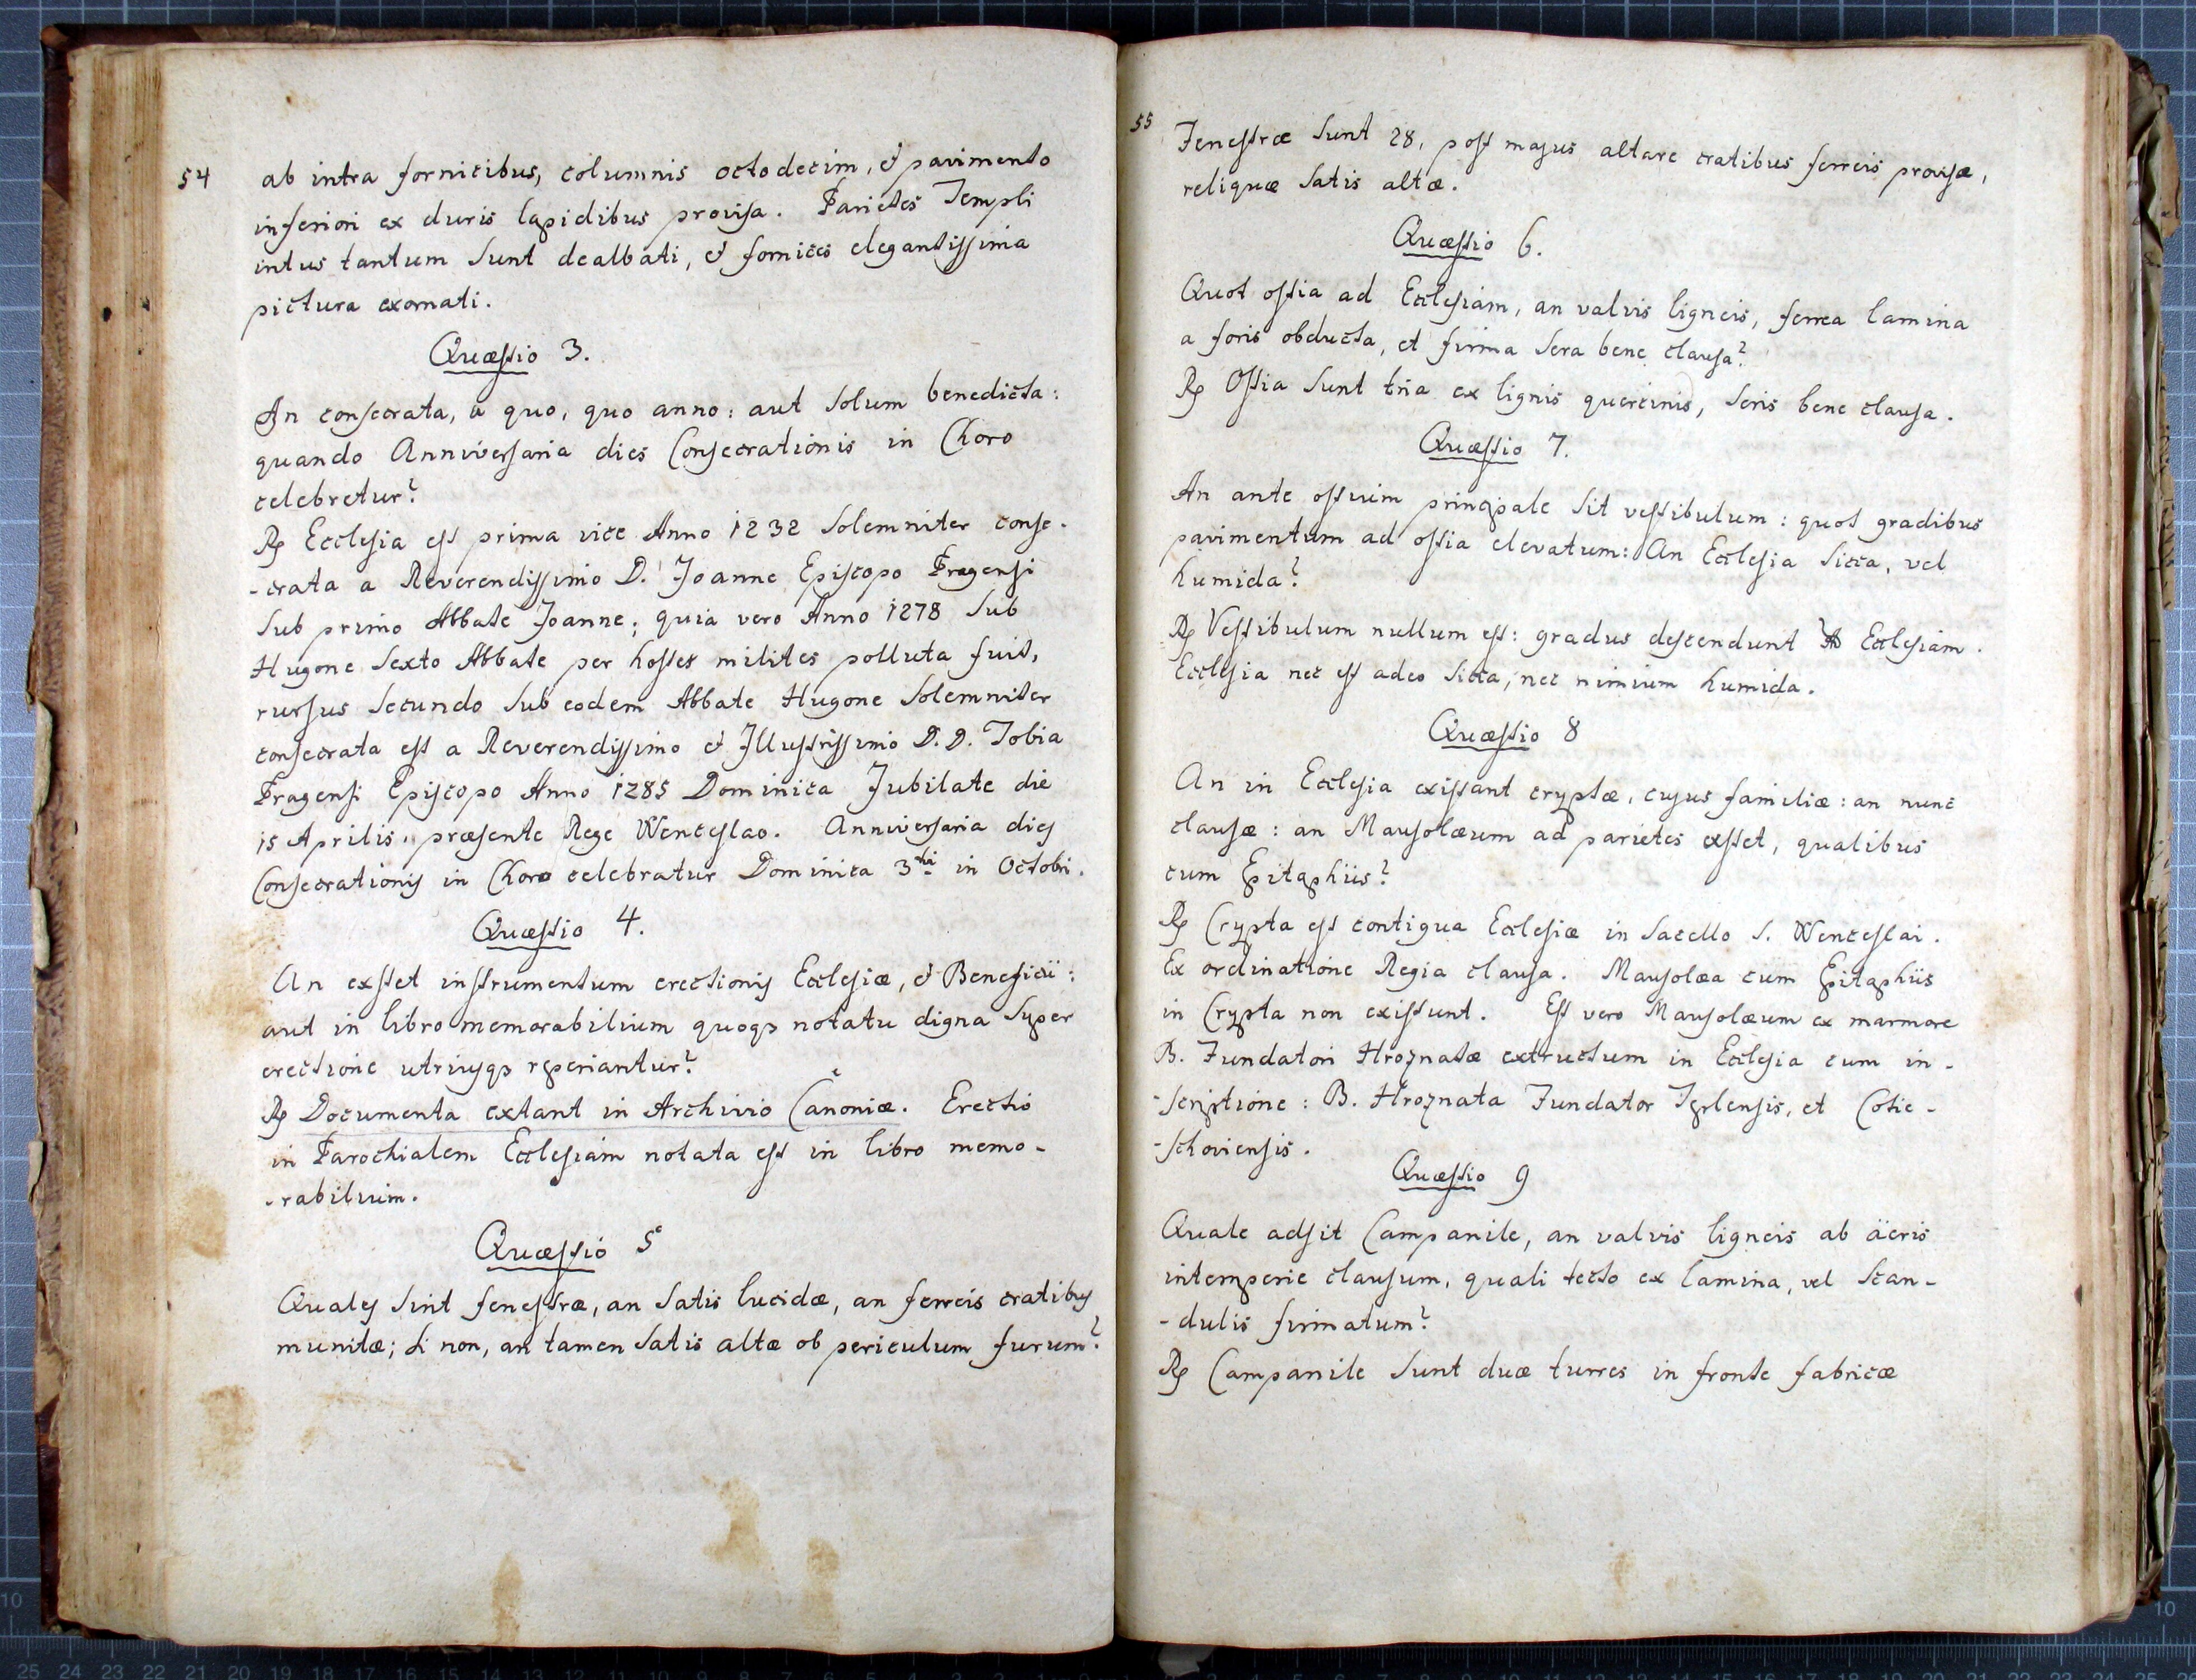 54
ab intra fornicibus, columnis octodecim, & pavimento
inferiori ex duris lapidibus provisa. Parietes Templi
intus tantum sunt dealbati, & fornices elegantissima
pictura exornati.
Quæstio 3.
An consecrata, a quo, quo anno: aut solum benedicta:
quando Anniversaria dies Consecrationis in Choro
celebretur?
℟ Ecclesia est prima vice Anno 1232 solemniter conse-
-crata a Reverendissimo D. Joanne Episcopo Pragensi
sub primo Abbate Joanne; quia vero Anno 1278 sub
Hugone sexto Abbate per hostes milites polluta fuit,
rursus secundo sub eodem Abbate Hugone solemniter
consecrata est a Reverendissimo & Illustrissimo D. D. Tobia
Pragensi Episcopo Anno 1285 Dominica Jubilate die
15 Aprilis, præsente Rege Wenceslao. Anniversaria dies
Consecrationis in Choro celebratur Dominica 3tia in Octobri.
Quæstio 4.
An exstet instrumentum erectionis Ecclesiæ, & Beneficii:
aut in libro memorabilium quoqꝫ notatu digna super
erectione utriusqꝫ reperiantur?
℟ Documenta extant in Archivio Canoniæ. Erectio
in Parochialem Ecclesiam notata est in libro memo-
-rabilium.
Quæstio 5
Quales sint fenestræ, an satis lucidæ, an ferreis cratibus
munitæ; si non, an tamen satis altæ ob periculum furum?
55
Fenestræ sunt 28, post majus altare cratibus ferreis provisæ,
reliquæ satis altæ.
Quæstio 6.
Quot ostia ad Ecclesiam, an valvis ligneis, ferrea lamina
a foris obducta, et firma sera bene clausa?
℟ Ostia sunt tria ex lignis quercinis, seris bene clausa.
Quæstio 7.
An ante ostium principale sit vestibulum: quot gradibus
pavimentum ad ostia elevatum: An Ecclesia sicca, vel
humida?
℟ Vestibulum nullum est: gradus descendunt Ecclesiam.
Ecclesia nec est adeo sicca, nec nimium humida.
Quæstio 8
An in Ecclesia existant cryptæ, cujus familiæ: an nunc
clausæ: an Mausolæum ad parietes exstet, qualibus
cum Epitaphiis?
℟ Crypta est contigua Ecclesiæ in sacello S. Wenceslai.
Ex ordinatione Regia clausa. Mausolæa cum Epitaphiis
in Crypta non existunt. Est vero Mausolæum ex marmore
B. Fundatori Hroznatæ extructum in Ecclesia cum in-
-scriptione: B. Hroznata Fundator Teplensis, et Cotie-
-schoviensis.
Quæstio 9
Quale adsit Campanile, an valvis ligneis ab äeris
intemperie clausum, quali tecto ex lamina, vel scan-
-dulis firmatum?
℟ Campanile sunt duæ turres in fronte fabricæ